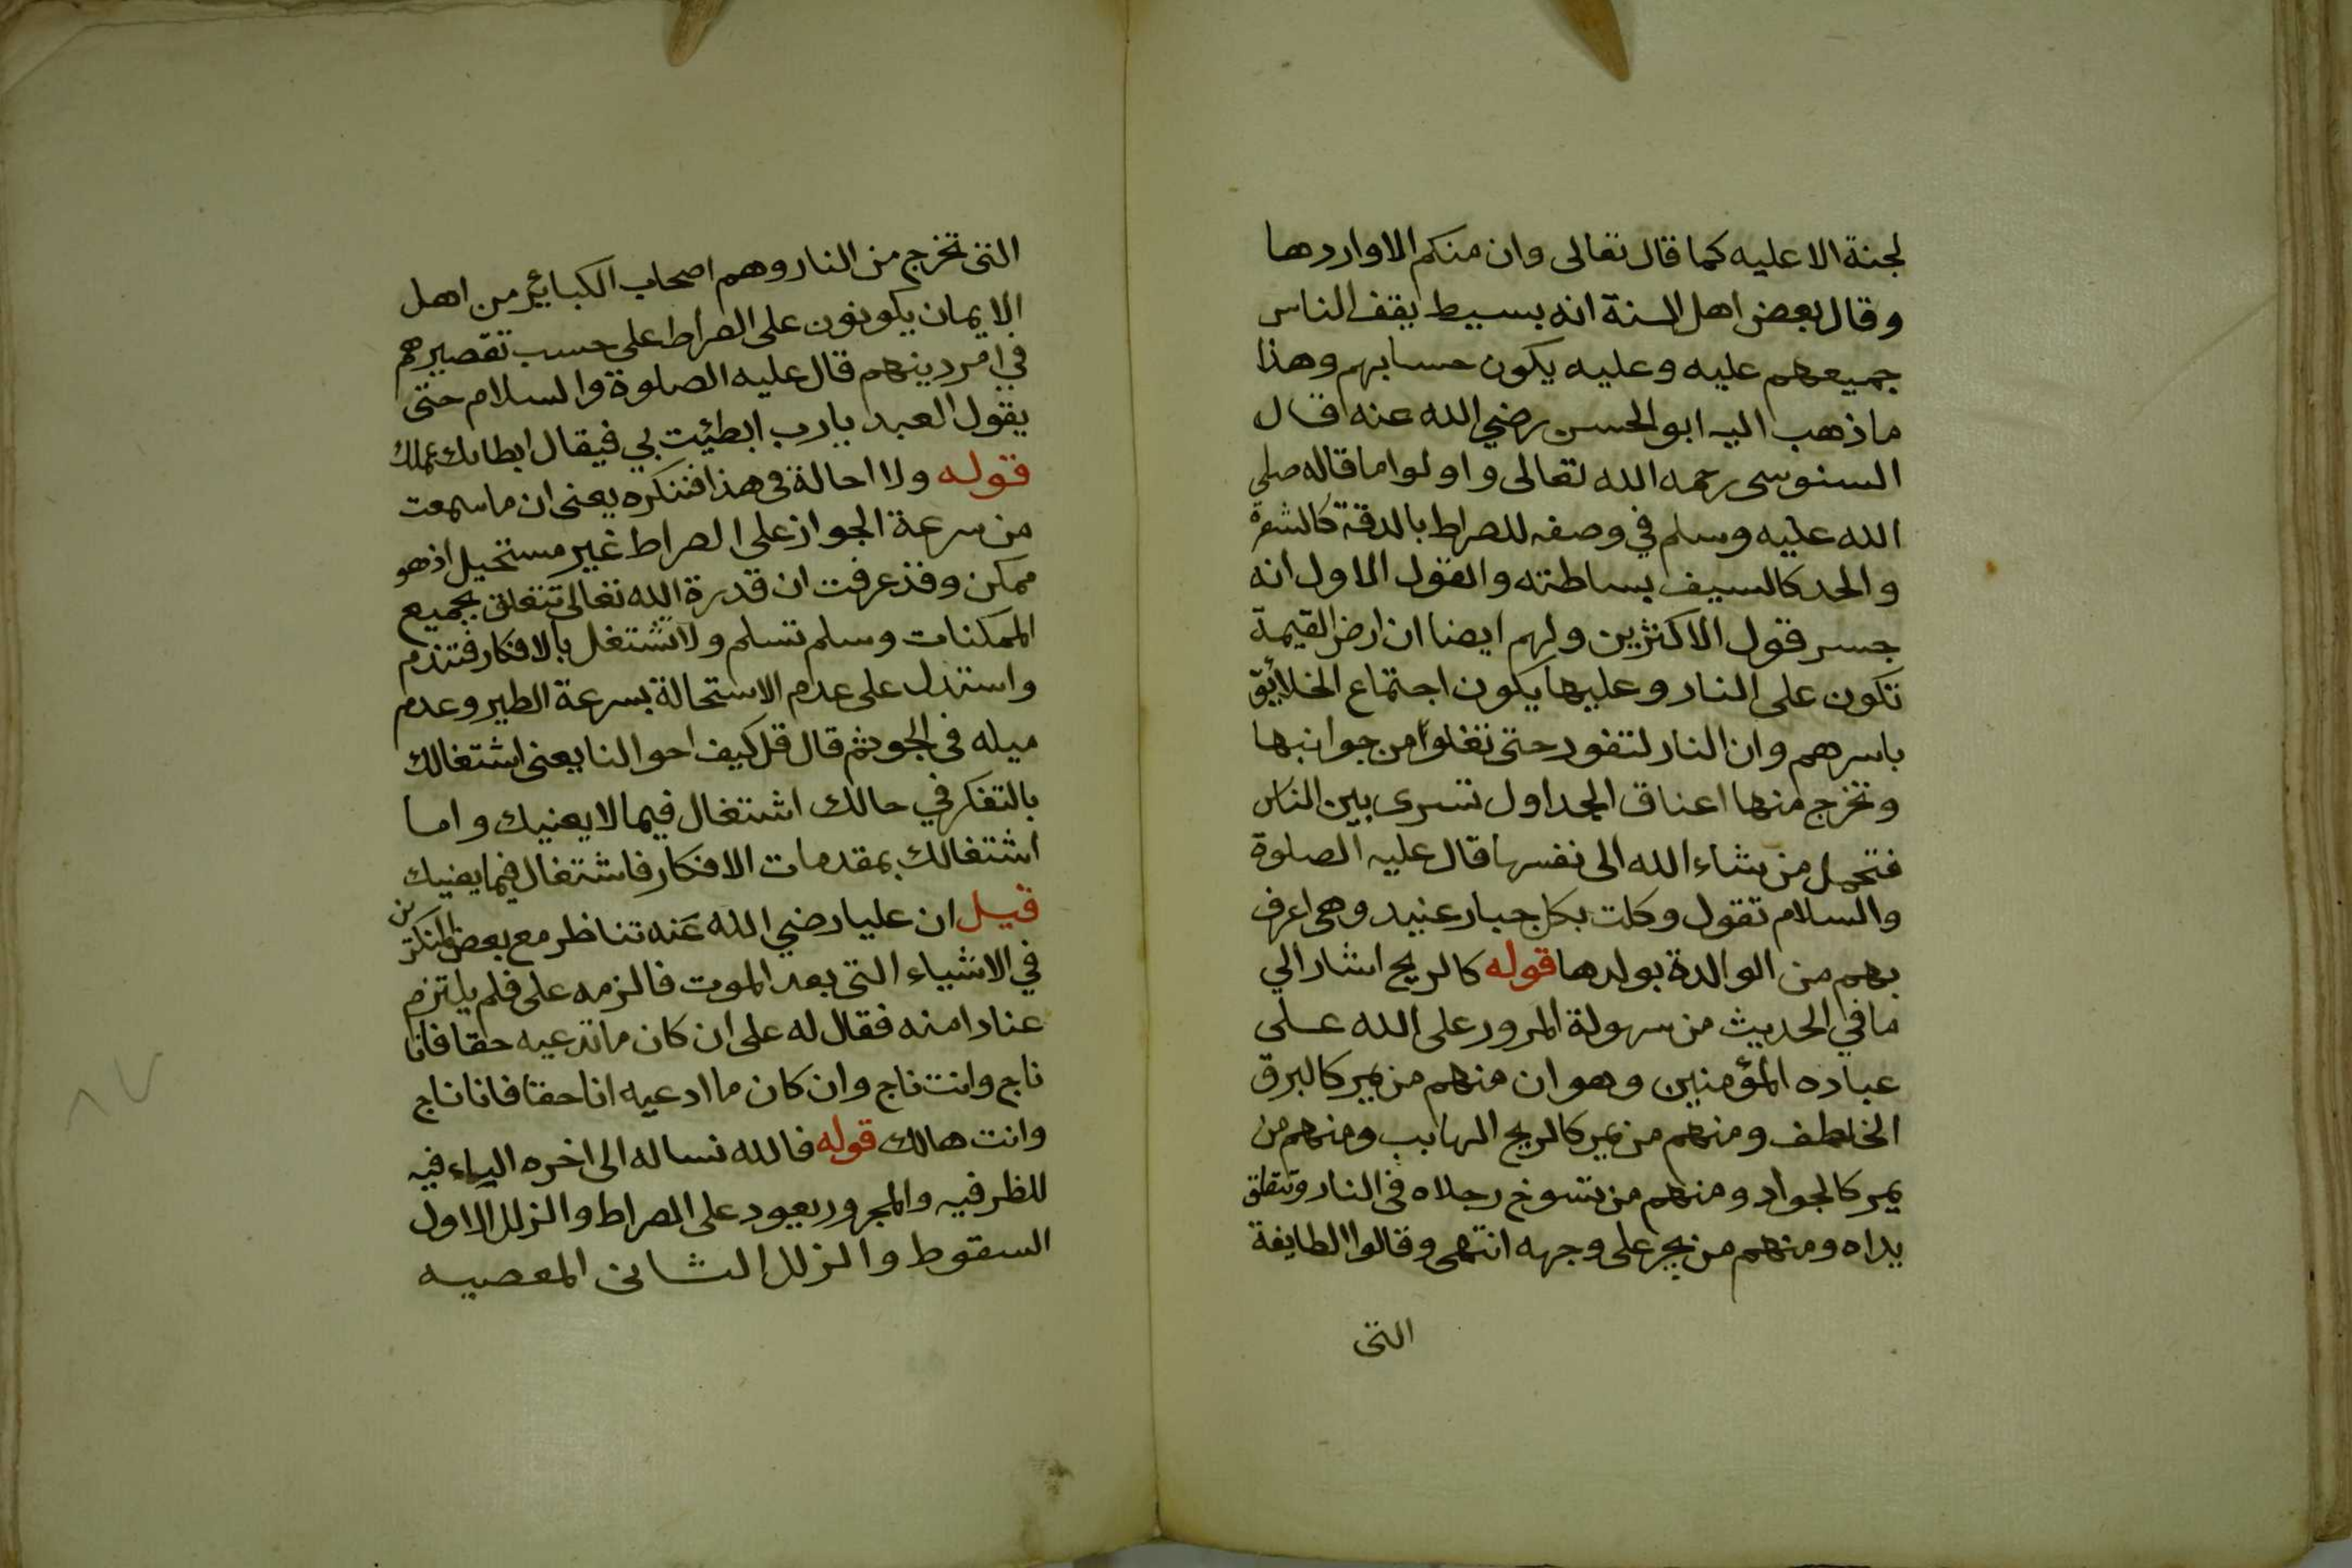 لجنة الا عليه كما قال تعالى وان منكم الا واردها
وقال بعض اهل السنة انه بسيط يقف الناس
جميعهم عليه وعليه يكون حسابهم وهذا
ما ذهب اليه ابو الحسن رضي الله عنه قال
السنوسى رحمه الله تعالى واولوا ما قاله صلى
الله عليه وسلم في وصفه للصراط بالدقة كالشعرة
والحد كالسيف بساطته والقول الاول انه
جسر قول الاكثرين ولهم ايضا ان ارض القيمة
تكون على النار وعليها يكون اجتماع الخلائق
باسرهم وان النار لتفور حتى تغلوا من جوانبها
وتخرج منها اعناق الجداول تسرى بين الناس
فتحمل من شاء الله الى نفسها قال عليه الصلوة
والسلام تقول وكلت بكل جبار عنيد وهى اعرف
بهم من الوالدة بولدها قوله كالريح اشار الي
ما في الحديث من سهولة المرور على الله على
عباده المؤمنين وهو ان منهم من يمر كالبرق
الخاطف ومنهم من يمر كالريح الهابب ومنهم من
يمر كالجواد ومنهم من تسوخ رجلاه فى النار وتتعلق
يداه ومنهم من يجر على وجهه انتهى وقالوا الطايفة
التى
التى تخرج من النار وهم اصحاب الكبائير من اهل
الايمان يكونون على الصراط على حسب تقصيرهم
في امر دينهم قال عليه الصلوة والسلام حتى
يقول العبد يارب ابطئت بي فيقال ابطا بك عملك
قوله ولا احالة فى هذا فننكره يعنى ان ما سمعت
من سرعة الجواز على الصراط غير مستحيل اذ هو
ممكن وقد عرفت ان قدرة الله تعالى تتعلق بجميع
الممكنات وسلم تسلم ولا تشتغل بالافكار فتندم
واستدل على عدم الاستحالة بسرعة الطير وعدم
ميله فى الجو ثم قال قل كيف احوالنا يعنى اشتغالك
بالتفكر في حالك اشتغال فيما لا يعنيك واما
اشتغالك بمقدمات الافكار فاشتغال فيما يعنيك
قيل ان عليا رضي الله عنه تناظر مع بعض المنكرين
في الاشياء التى بعد الموت فالزمه على فلم يلتزم
عنادا منه فقال له على ان كان ما تدعيه حقا فانا
ناج وانت ناج وان كان ما ادعيه انا حقا فانا ناج
وانت هالك قوله فالله نساله الى اخره الياء فيه
للظرفيه والمجرور يعود على الصراط والزلل الاول
السقوط والزلل الثانى المعصيه